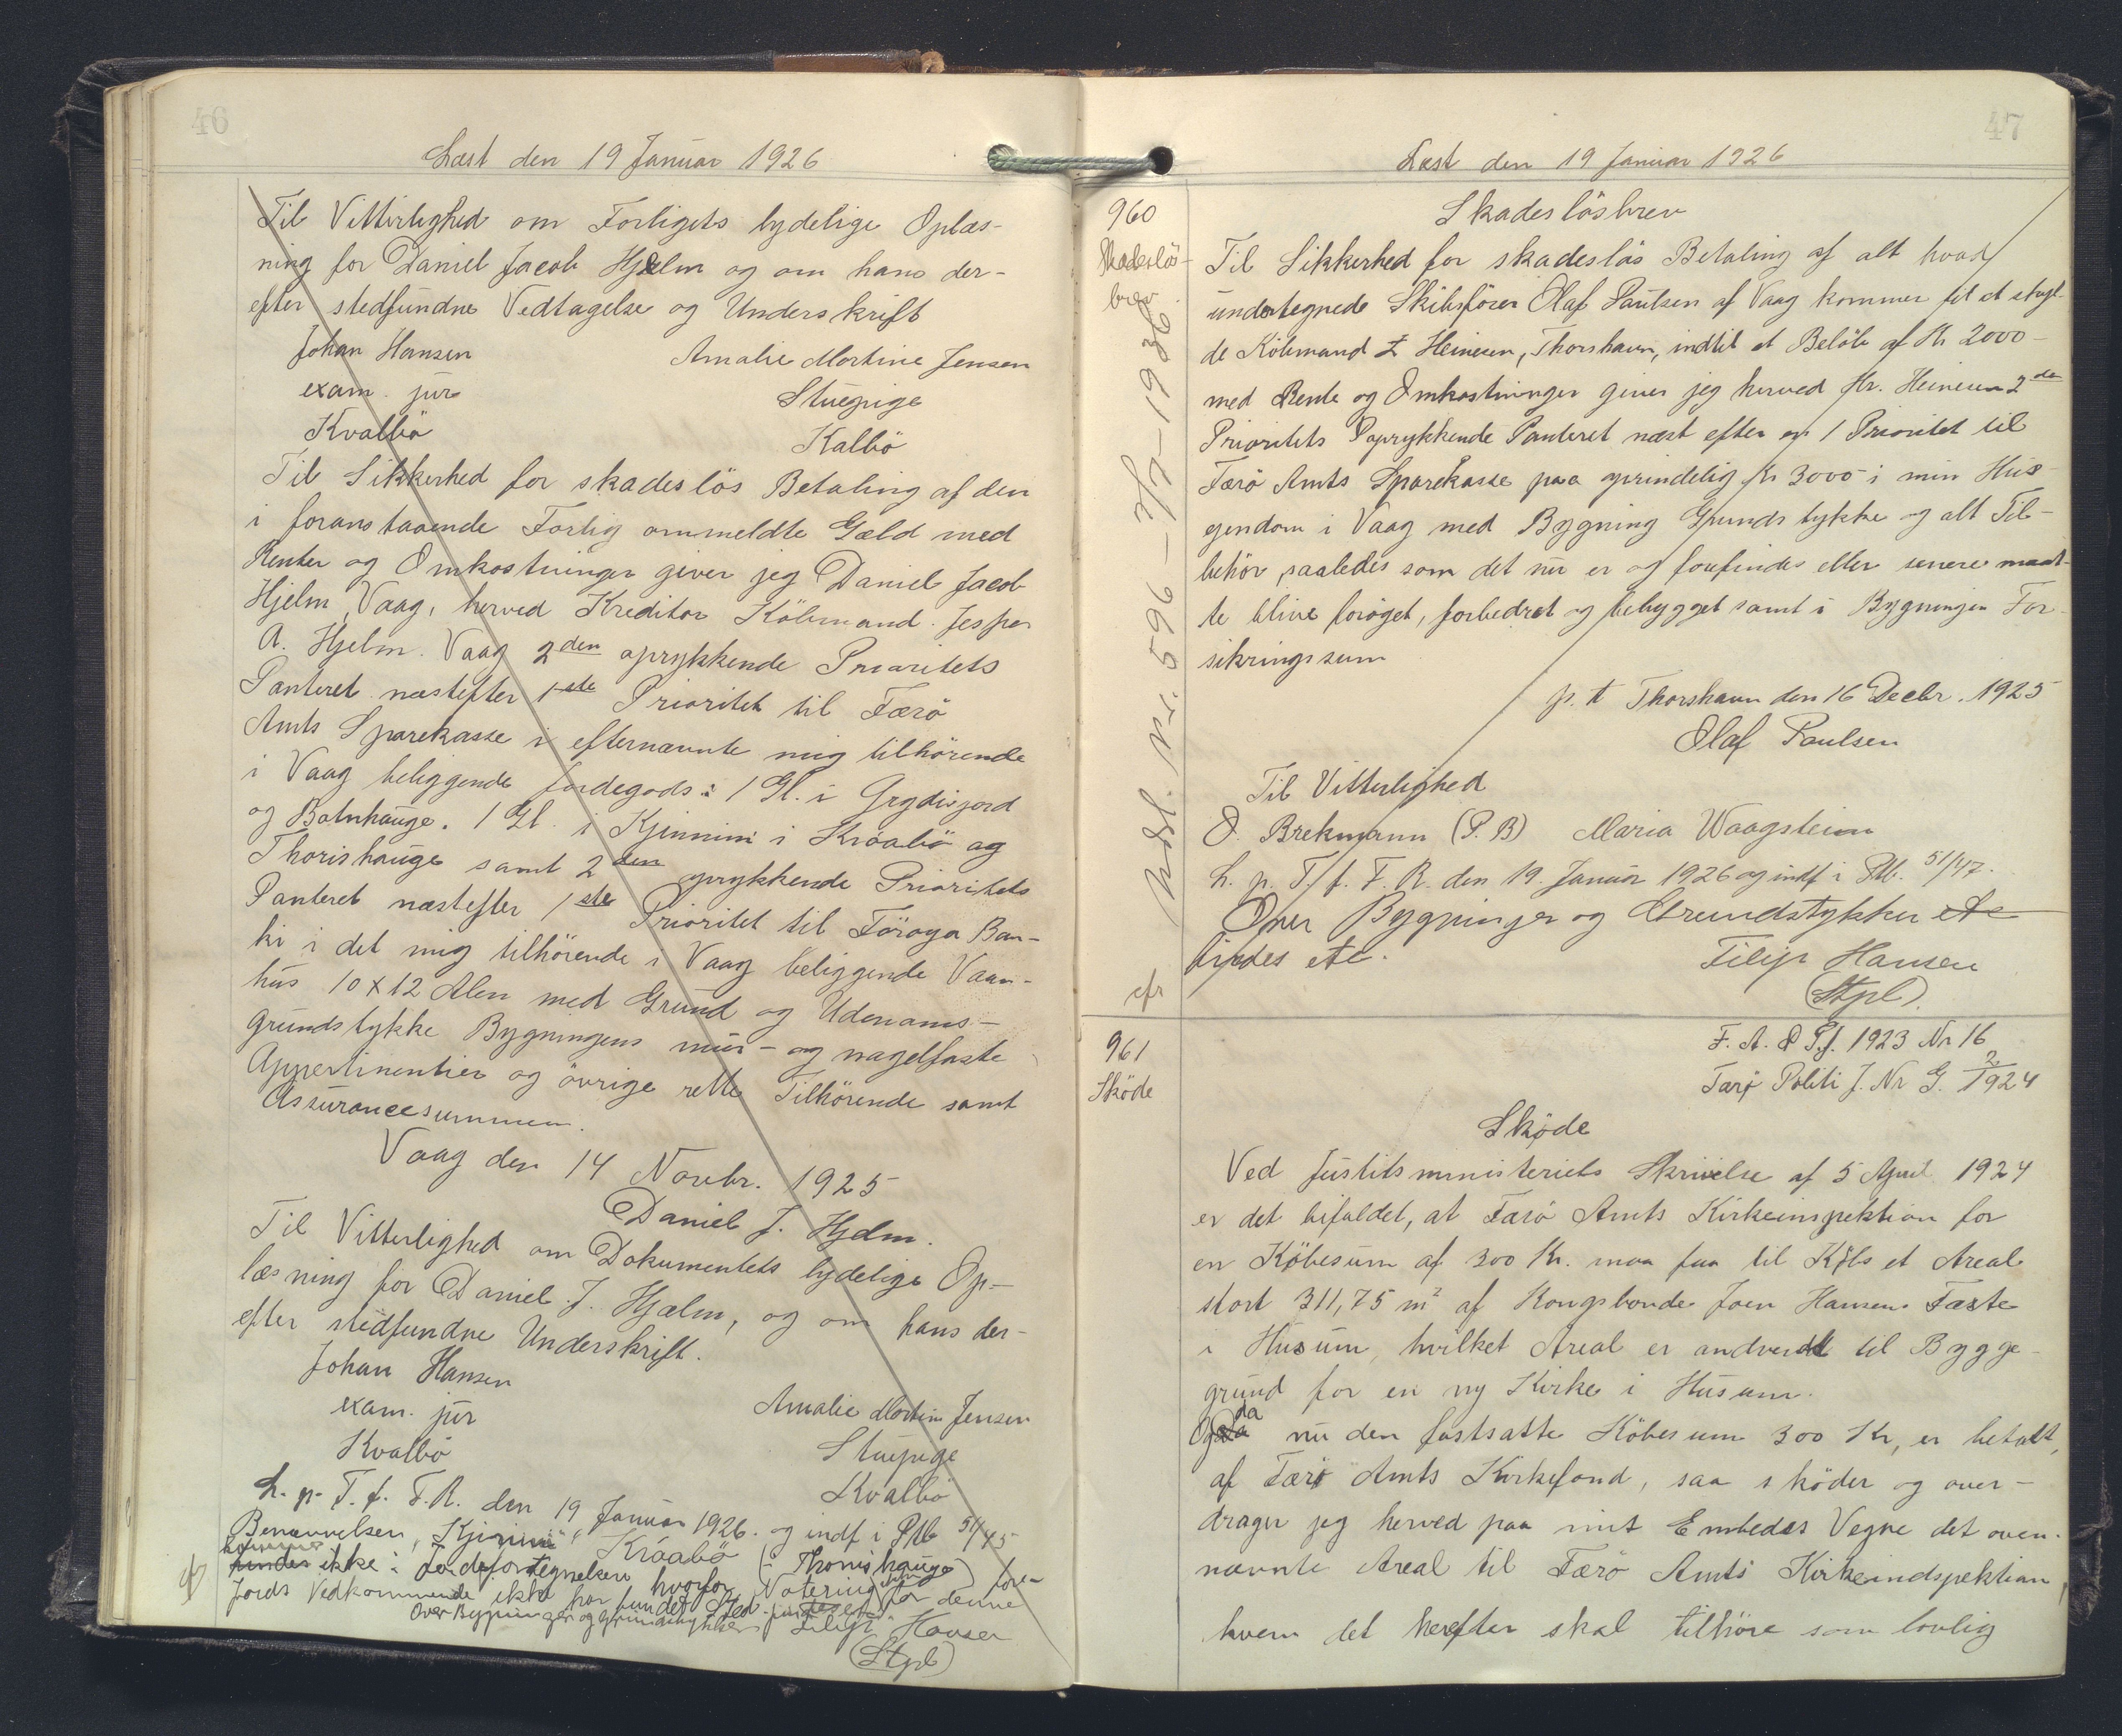 46
Læst den 19 Januar 1926
Til Vitterlighed om Forligets lydelige Oplæs-
ning for Daniel Jacob Hjelm og om hans der-
efter stedfundne Vedtagelse og Underskrift
Johan Hansen
exam. jur
Kvalbö
Amalie Mortine Jensen
Stuepige
Kalbö
Til Sikkerhed for skadeslös Betaling af den
i foranstaaende Forlig ommeldte Gæld med
Renter og Omkostninger giver jeg Daniel Jacob
Hjelm, Vaag, herved Kreditor Köbmand Jesper
A. Hjelm. Vaag 2den oprykkende Prioritets
Panteret næstefter 1ste Prioritet til Færö
Amts Sparekasse i efternævnte mig tilhörende
i Vaag beliggende Jordegods: 1 Gl. i Grydisjord
og Botnhauge. 1 Gl. i Kjinnini i Kroabö og
Thorishauge samt 2den oprykkende Prioritets
Panteret næstefter 1ste Prioritet til Föroya Ban-
ki i det mig tilhörende i Vaag beliggende Vaan-
hus 10 x 12 Alen med Grund og Udenoms-
Grundstykke Bygningens mur- og nagelfaste
Appertinentier og övrige rette Tilhörende samt
Assurancesummen.
Vaag den 14 Novbr. 1925
Daniel J. Hjelm.
Til Vitterlighed om Dokumentets lydelige Op-
læsning for Daniel J. Hjælm, og om hans der-
efter stedfundne Underskrift.
Johan Hansen
exam. jur
Kvalbö
Amalie Mortine Jensen
Stuepige
Kvalbö
L. p. T. f. F. R. den 19 Januar 1926. og indf i Ptb 51/45
Benævnelsen "Kjinini", Kroabö (i Thorishauge) fore-
kommer
findes ikke i Jordefortegnelsen hvorfor Notering for denne
Jords Vedkommende ikke har fundet Sted
Over Bygninger og Grundstykker findes ej
Filip Hansen
(Stpl)
47
Læst den 19 Januar 1926
960
Skadeslös-
brev
Skadeslösbrev
Til Sikkerhed for skadeslös Betaling af alt hvad
undertegnede Skibsförer Olaf Paulsen af Vaag kommer til at skyl-
de Köbmand Z Heinesen, Thorshavn, indtil et Belöb af Kr 2000-
med Rente og Omkostninger giver jeg herved Hr. Heinesen 2de
Prioritets Oprykkende Panteret næst efter en 1 Prioritet til
Færö Amts Sparekasse paa oprindelig Kr 3000 i min Hus
ejendom i Vaag med Bygning Grundstykke og alt Til-
behör, saaledes som det nu er og forefindes eller senere maat-
te blive foröget, forbedret og bebygget samt i Bygningen For-
sikringssum
p. t Thorshavn den 16 Decbr. 1925
Olaf Paulsen
Til Vitterlighed
O. Brekmann (P. B) Maria Waagstein
L. p. T. f. F. R. den 19. Januar 1926 og indf i Ptb. 51/47.
Over Bygninger og Grundstykker etc
findes etc.
Filip Hansen
(Stpl).
Udsl. Nr. 596 - 3/7-1936.
cfr
961
Sköde
F. A. & P.J. 1923 Nr 16
Færö Politi J. Nr G. 2/1924
Sköde
Ved Justitsministeriets Skrivelse af 5 April 1924
er det bifaldet, at Færö Amts Kirkeinspektion for
en Köbesum af 300 Kr. maa faa til Köbs et Areal
stort 311,75 m² af Kongsbonde Joen Hansens Fæste
i Husum, hvilket Areal er andvendt til Bygge-
grund for en ny Kirke i Husum.
Og da nu den fastsatte Köbesum 300 Kr, er betalt,
af Færö Amts Kirkefond, saa sköder og over-
drager jeg herved paa mit Embedes Vegne det oven-
nævnte Areal til Færö Amts Kirkeindspektion,
hvem det herefter skal tilhöre som lovlig